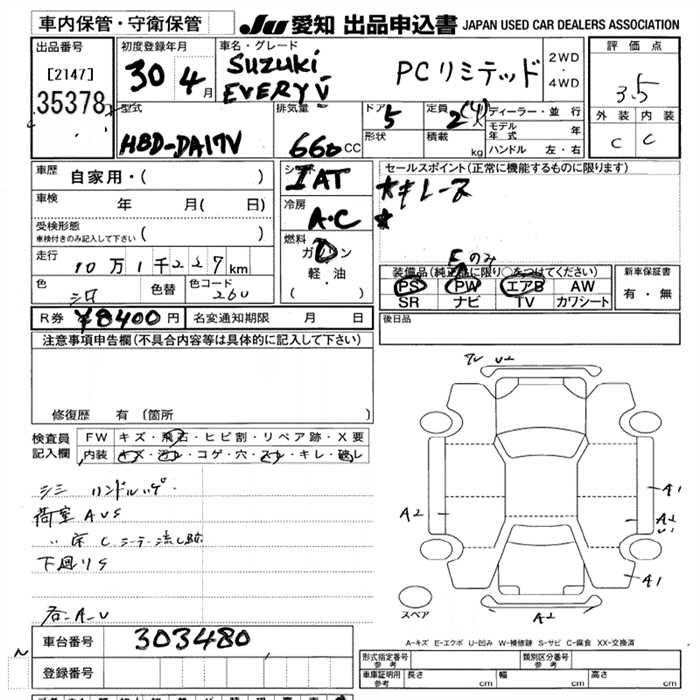 車内保管・守衛保管
JU 愛知 出品申込書 JAPAN USED CAR DEALERS ASSOCIATION
出品番号
[2147]
35378
初度登録年月
30 4月
車名・グレード
SUZUKI
EVERY V
PCリミテッド
2WD
・
4WD
評価点
3.5
外装 内装
C C
型式
HBD-DA17V
排気量
660 CC
ドア
5
形状
定員
2(4)
積載
kg
ディーラー・並行
モデル年式 年
ハンドル 左・右
車歴
自家用・( )
車検
年 月( 日)
受検形態
車検付きのみ記入して下さい ( )
走行
10万1千227km
色
色替
色コード
26U
シフト
IAT
冷房
A・C
燃料
ガソリン
・
軽油
( )
セールスポイント(正常に機能するものに限ります)
★キレース
★
Fのみ
装備品(純正品に限り○をつけてください)
PS PW エアB AW
SR ナビ TV カワシート
新車保証書
有・無
R券 ¥8400円 名変通知期限 月 日
後日品
注意事項申告欄(不具合内容等は具体的に記入して下さい)
修復歴 有 (箇所 )
検査員
記入欄
FW キズ・飛石・ヒビ割・リペア跡・X要
内装 キズ・汚レ・コゲ・穴・スレ・キレ・破レ
シミ ハンドルハゲ・
荷室 AUS
〃 床 C
下廻りS
右-A-U
U2
A2
A1
A2
U1
A1
A2
スペア
車台番号 303480
登録番号
A-キズ E-エクボ U-凹み W-補修跡 S-サビ C-腐食 XX-交換済
形式指定番号
参考
類別区分番号
参考
車庫証明用
参考
長さ cm 幅 cm 高さ cm